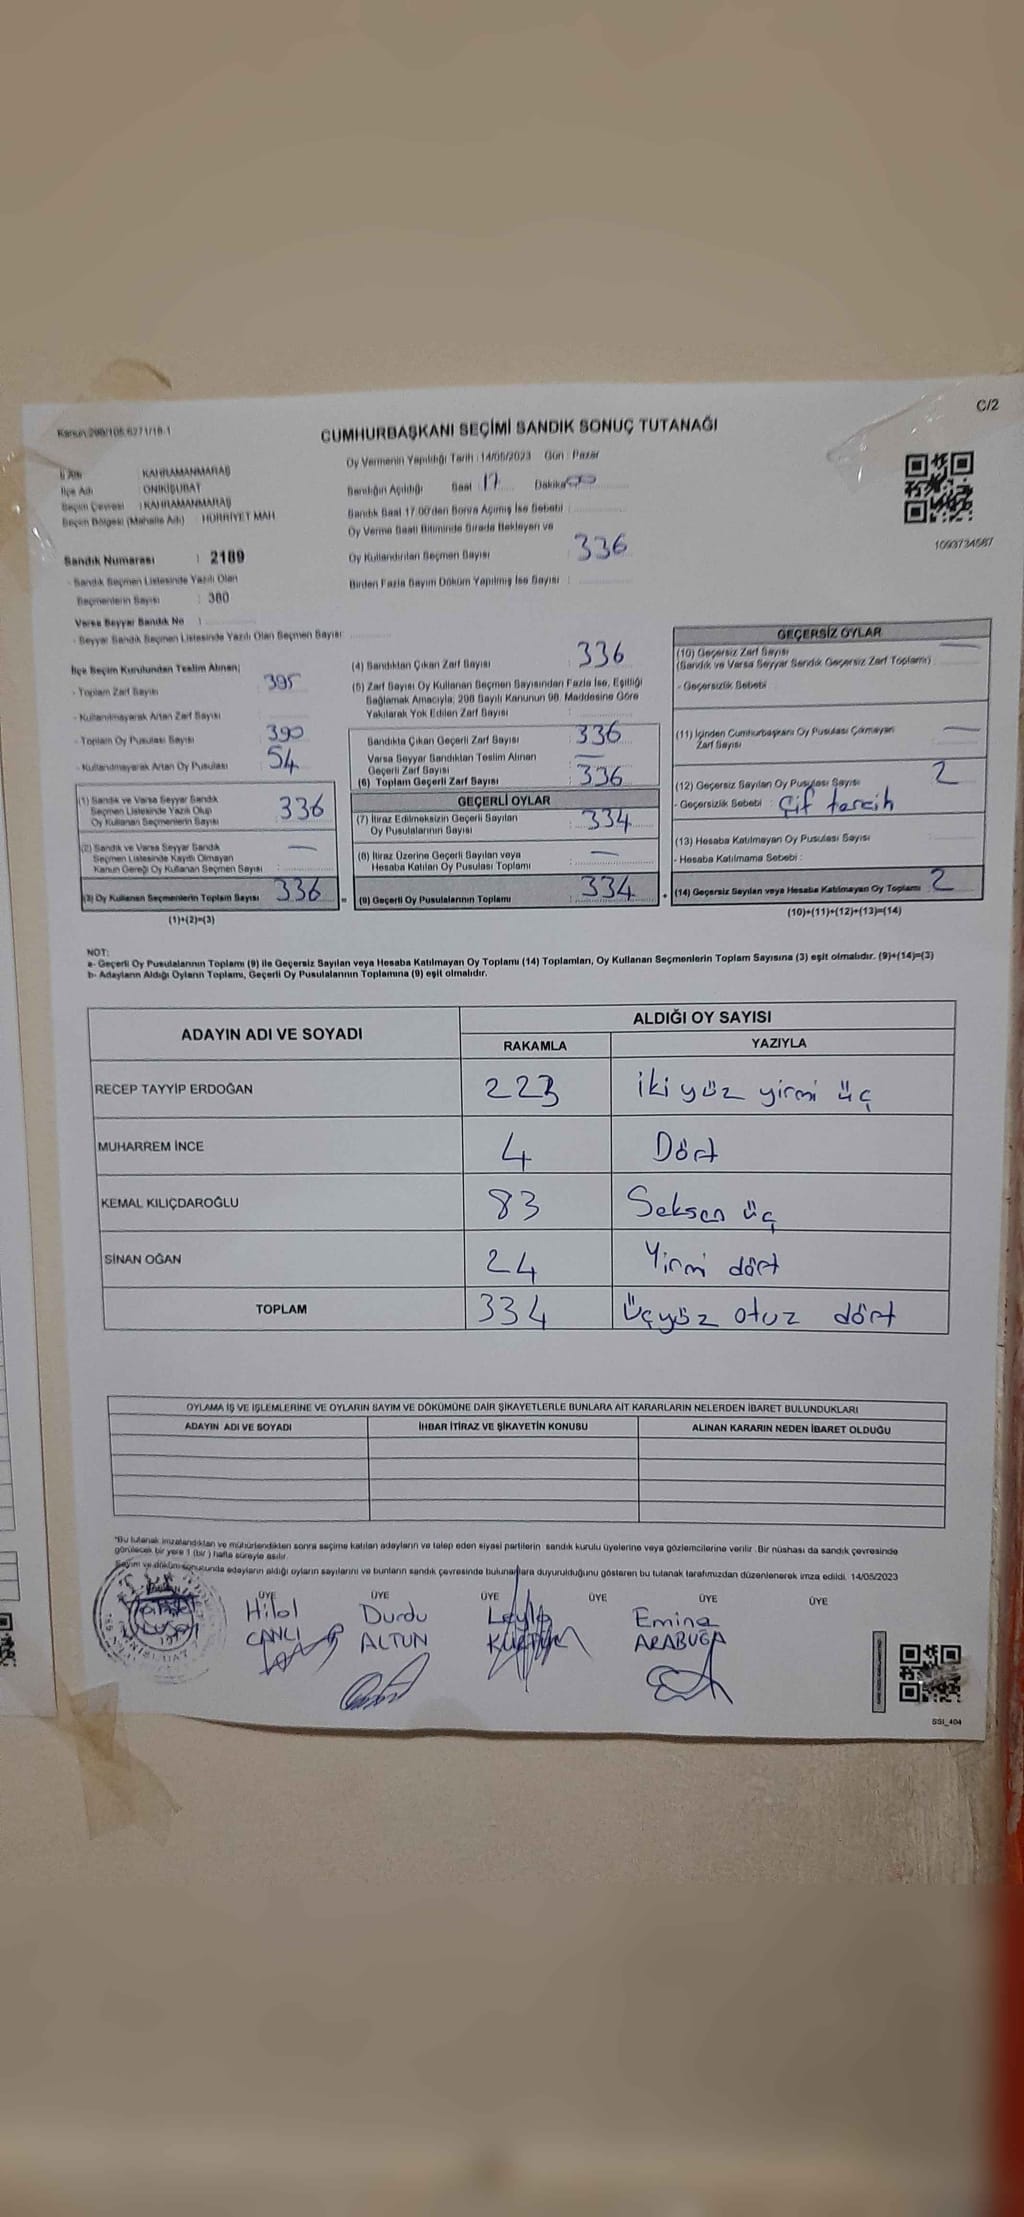 C/2
Kanun:298/105,6271/18-1
CUMHURBAŞKANI SEÇİMİ SANDIK SONUÇ TUTANAĞI
İl Adı : KAHRAMANMARAŞ
İlçe Adı : ONİKİŞUBAT
Seçim Çevresi : KAHRAMANMARAŞ
Seçim Bölgesi (Mahalle Adı) HÜRRİYET MAH.
Sandık Numarası : 2189
- Sandık Seçmen Listesinde Yazılı Olan
Seçmenlerin Sayısı : 380
Varsa Seyyar Sandık No :
- Seyyar Sandık Seçmen Listesinde Yazılı Olan Seçmen Sayısı:
Oy Vermenin Yapıldığı Tarih : 14/05/2023 Gün : Pazar
Sandığın Açıldığı Saat 17 Dakika 00
Sandık Saat 17.00'den Sonra Açımış İse Sebebi :
Oy Verme Saati Bitiminde Sırada Bekleyen ve
Oy Kullandırılan Seçmen Sayısı 336
Birden Fazla Sayım Döküm Yapılmış İse Sayısı :
1093734587
İlçe Seçim Kurulundan Teslim Alınan;
- Toplam Zarf Sayısı 395
- Kullanılmayarak Artan Zarf Sayısı :
- Toplam Oy Pusulası Sayısı 390
- Kullanılmayarak Artan Oy Pusulası 54
(1) Sandık ve Varsa Seyyar Sandık
Seçmen Listesinde Yazılı Olup
Oy Kullanan Seçmenlerin Sayısı 336
(2) Sandık ve Varsa Seyyar Sandık
Seçmen Listesinde Kayıtlı Olmayan
Kanun Gereği Oy Kullanan Seçmen Sayısı : —
(3) Oy Kullanan Seçmenlerin Toplam Sayısı 336
(1)+(2)=(3)
=
(4) Sandıktan Çıkan Zarf Sayısı 336
(5) Zarf Sayısı Oy Kullanan Seçmen Sayısından Fazla İse, Eşitliği
Sağlamak Amacıyla; 298 Sayılı Kanunun 98. Maddesine Göre
Yakılarak Yok Edilen Zarf Sayısı :
Sandıkta Çıkan Geçerli Zarf Sayısı 336
Varsa Seyyar Sandıktan Teslim Alınan
Geçerli Zarf Sayısı —
(6) Toplam Geçerli Zarf Sayısı 336
GEÇERLİ OYLAR
(7) İtiraz Edilmeksizin Geçerli Sayılan
Oy Pusulalarının Sayısı : 334
(8) İtiraz Üzerine Geçerli Sayılan veya
Hesaba Katılan Oy Pusulası Toplamı : —
(9) Geçerli Oy Pusulalarının Toplamı : 334
+
GEÇERSİZ OYLAR
(10) Geçersiz Zarf Sayısı —
(Sandık ve Varsa Seyyar Sandık Geçersiz Zarf Toplamı)
- Geçersizlik Sebebi
(11) İçinden Cumhurbaşkanı Oy Pusulası Çıkmayan
Zarf Sayısı —
(12) Geçersiz Sayılan Oy Pusulası Sayısı 2
- Geçersizlik Sebebi : Çif tercih
(13) Hesaba Katılmayan Oy Pusulası Sayısı
- Hesaba Katılmama Sebebi :
(14) Geçersiz Sayılan veya Hesaba Katılmayan Oy Toplamı 2
(10)+(11)+(12)+(13)=(14)
NOT:
a- Geçerli Oy Pusulalarının Toplamı (9) ile Geçersiz Sayılan veya Hesaba Katılmayan Oy Toplamı (14) Toplamları, Oy Kullanan Seçmenlerin Toplam Sayısına (3) eşit olmalıdır. (9)+(14)=(3)
b- Adayların Aldığı Oyların Toplamı, Geçerli Oy Pusulalarının Toplamına (9) eşit olmalıdır.
ADAYIN ADI VE SOYADI ALDIĞI OY SAYISI
RAKAMLA YAZIYLA
RECEP TAYYİP ERDOĞAN 223 İki yüz yirmi üç
MUHARREM İNCE 4 Dört
KEMAL KILIÇDAROĞLU 83 Seksen üç
SİNAN OĞAN 24 Yirmi dört
TOPLAM 334 Üçyüz otuz dört
OYLAMA İŞ VE İŞLEMLERİNE VE OYLARIN SAYIM VE DÖKÜMÜNE DAİR ŞİKAYETLERLE BUNLARA AİT KARARLARIN NELERDEN İBARET BULUNDUKLARI
ADAYIN ADI VE SOYADI İHBAR İTİRAZ VE ŞİKAYETİN KONUSU ALINAN KARARIN NEDEN İBARET OLDUĞU
*Bu tutanak imzalandıktan ve mühürlendikten sonra seçime katılan adayların ve talep eden siyasi partilerin sandık kurulu üyelerine veya gözlemcilerine verilir. Bir nüshası da sandık çevresinde
görülecek bir yere 1 (bir) hafta süreyle asılır.
Sayım ve döküm sonucunda adayların aldığı oyların sayılarını ve bunların sandık çevresinde bulunanlara duyurulduğunu gösteren bu tutanak tarafımızdan düzenlenerek imza edildi. 14/05/2023
ÜYE ÜYE ÜYE ÜYE ÜYE ÜYE
Hilal Durdu Leyla Emine
CANLI ALTUN ARABUĞA
SSİ_404